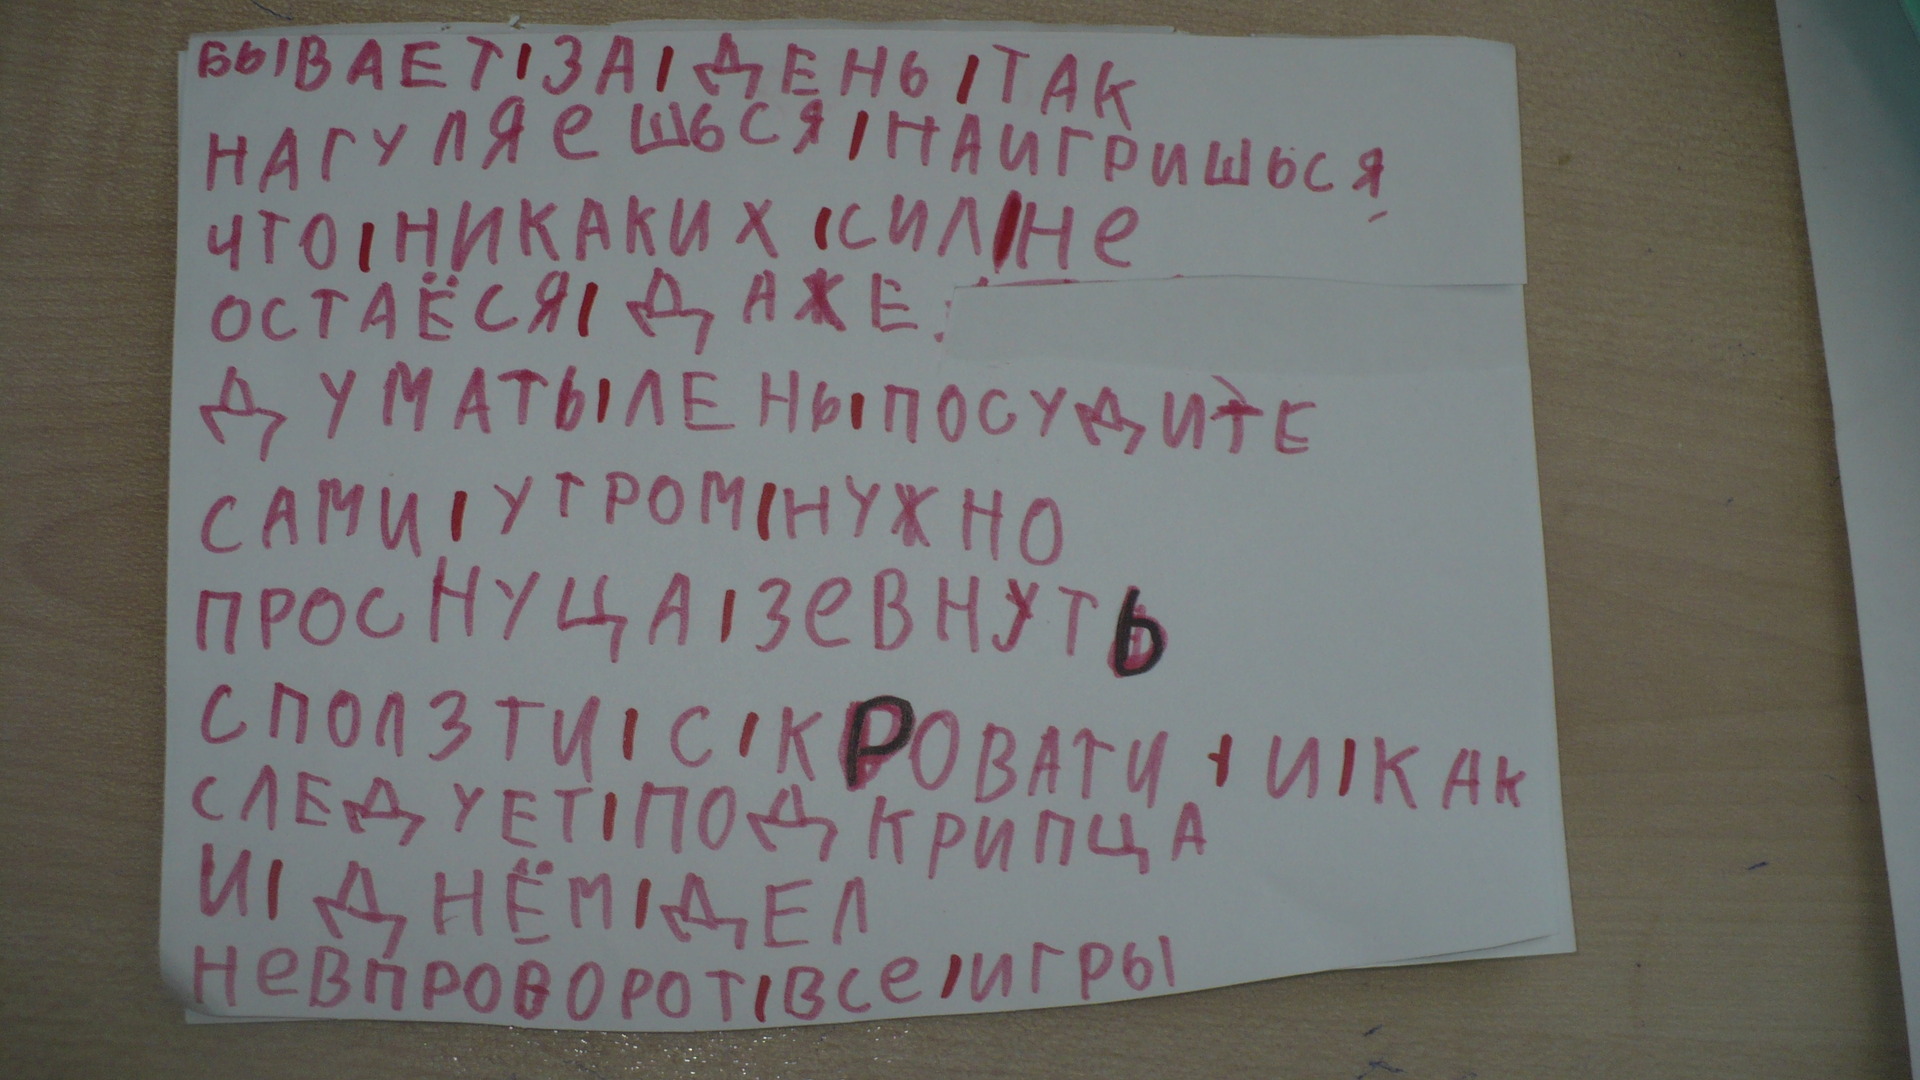 БЫВАЕТ|ЗА|ДЕНЬ|ТАК
НАГУЛЯЕШЬСЯ|НАИГРИШЬСЯ
ЧТО|НИКАКИХ|СИЛ|НЕ
ОСТАЁСЯ|ДАЖЕ
ДУМАТЬ|ЛЕНЬ|ПОСУДИТЕ
САМИ|УТРОМ|НУЖНО
ПРОСНУЩА|ЗЕВНУТЬ
СПОЛЗТИ|С|КРОВАТИ|И|КАК
СЛЕДУЕТ|ПОДКРИПЦА
И|ДНЁМ|ДЕЛ
НЕВПРОВОРОТ|ВСЕ|ИГРЫ